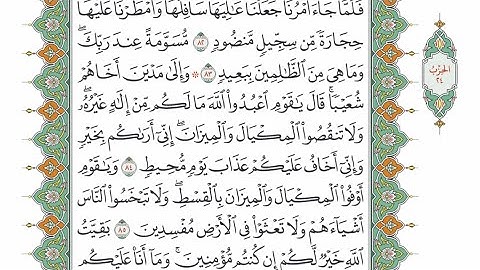 فَلَمَّا جَآءَ أَمْرُنَا جَعَلْنَا عَٰلِيَهَا سَافِلَهَا وَأَمْطَرْنَا عَلَيْهَا
حِجَارَةً مِّن سِجِّيلٍ مَّنضُودٍ ۝٨٢ مُّسَوَّمَةً عِندَ رَبِّكَۖ
وَمَا هِيَ مِنَ ٱلظَّٰلِمِينَ بِبَعِيدٍ ۝٨٣ ۞ وَإِلَىٰ مَدْيَنَ أَخَاهُمْ
شُعَيْبًاۚ قَالَ يَٰقَوْمِ ٱعْبُدُواْ ٱللَّهَ مَا لَكُم مِّنْ إِلَٰهٍ غَيْرُهُۥۖ
وَلَا تَنقُصُواْ ٱلْمِكْيَالَ وَٱلْمِيزَانَۖ إِنِّيٓ أَرَىٰكُم بِخَيْرٍ
وَإِنِّيٓ أَخَافُ عَلَيْكُمْ عَذَابَ يَوْمٍ مُّحِيطٍ ۝٨٤ وَيَٰقَوْمِ
أَوْفُواْ ٱلْمِكْيَالَ وَٱلْمِيزَانَ بِٱلْقِسْطِۖ وَلَا تَبْخَسُواْ ٱلنَّاسَ
أَشْيَآءَهُمْ وَلَا تَعْثَوْاْ فِي ٱلْأَرْضِ مُفْسِدِينَ ۝٨٥ بَقِيَّتُ
ٱللَّهِ خَيْرٌ لَّكُمْ إِن كُنتُم مُّؤْمِنِينَۚ وَمَآ أَنَا۠ عَلَيْكُم
الحزب
٢٤